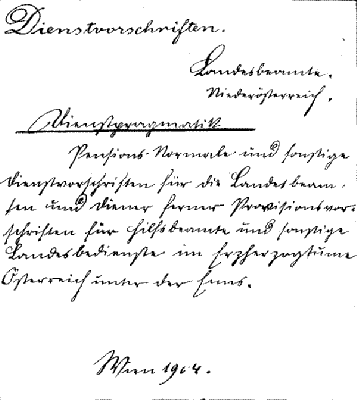 Dienstvorschriften.
Landesbeamte.
Niederösterreich.
Dienstpragmatik
Pensions-Normale und sonstige
Dienstvorschriften für die Landesbeam-
ten und Diener ferner Provisionsvor-
schriften für Hilfsbeamte und sonstige
Landesbedienste im Erzherzogtume
Österreich unter der Enns.
Wien 1904.